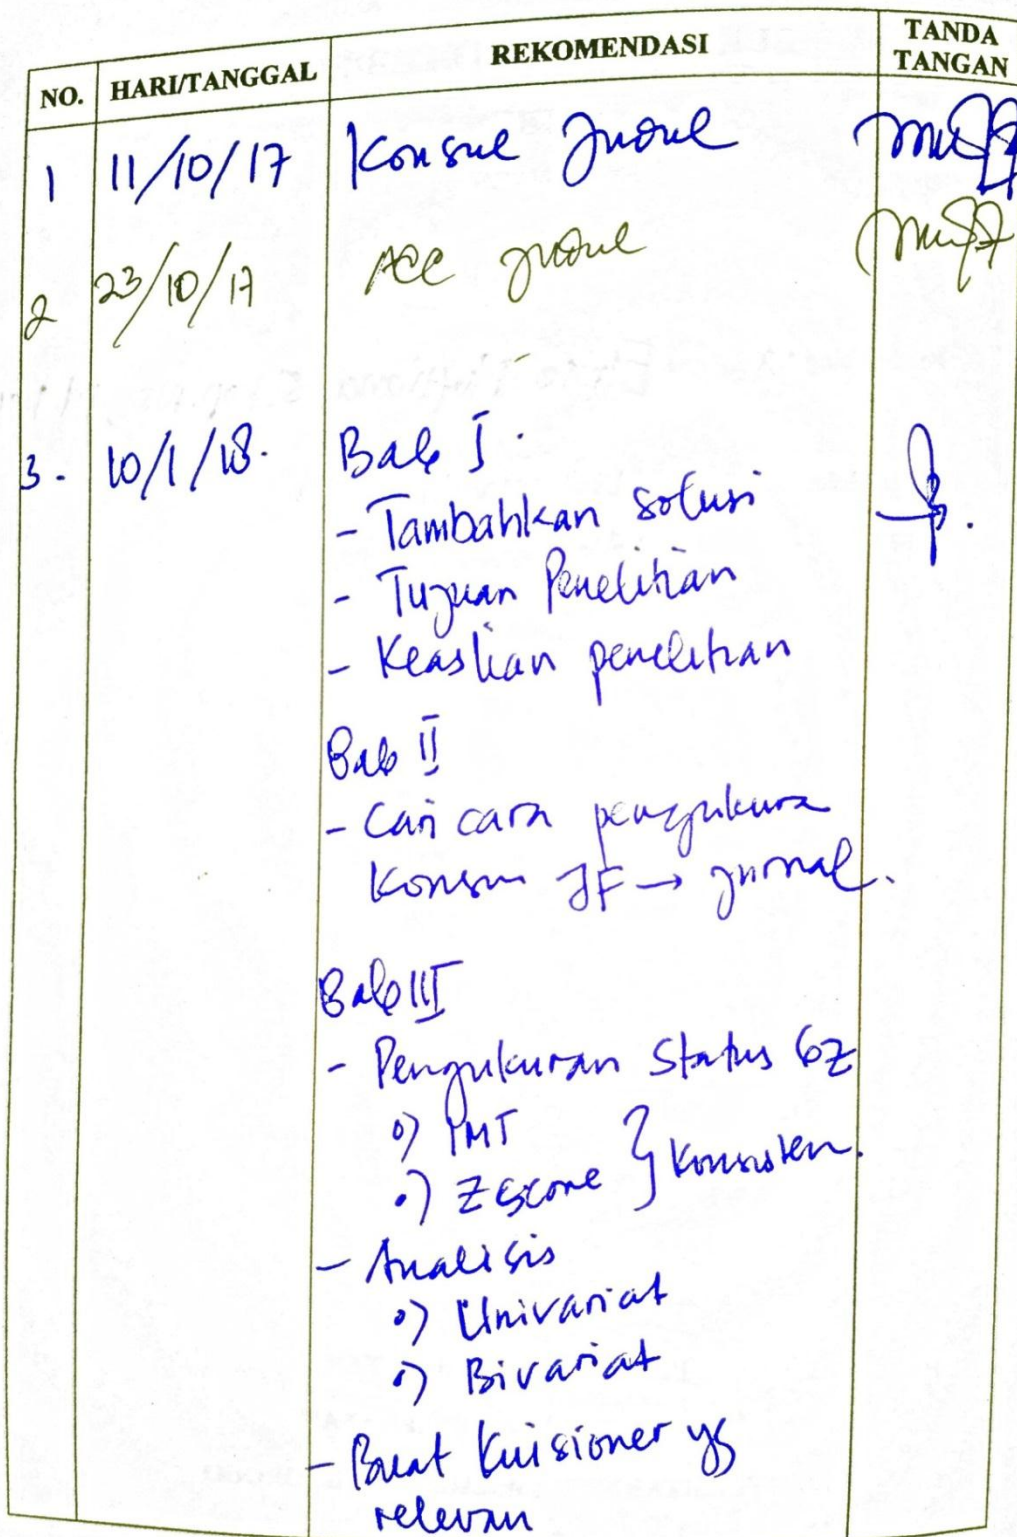 NO. HARI/TANGGAL REKOMENDASI TANDA
TANGAN
1 11/10/17 Konsul Judul
2 23/10/17 Acc judul
3. 10/1/18. Bab I.
- Tambahkan solusi
- Tujuan Penelitian
- Keaslian penelitian
Bab II
- Cari cara pengukura
Konsm JF → jurnal.
Bab III
- Pengukuran Status Gz
o) IMT
o) Zscore } Konsisten.
- Analisis
o) Univariat
o) Bivariat
- Buat Kuisioner yg
relevan